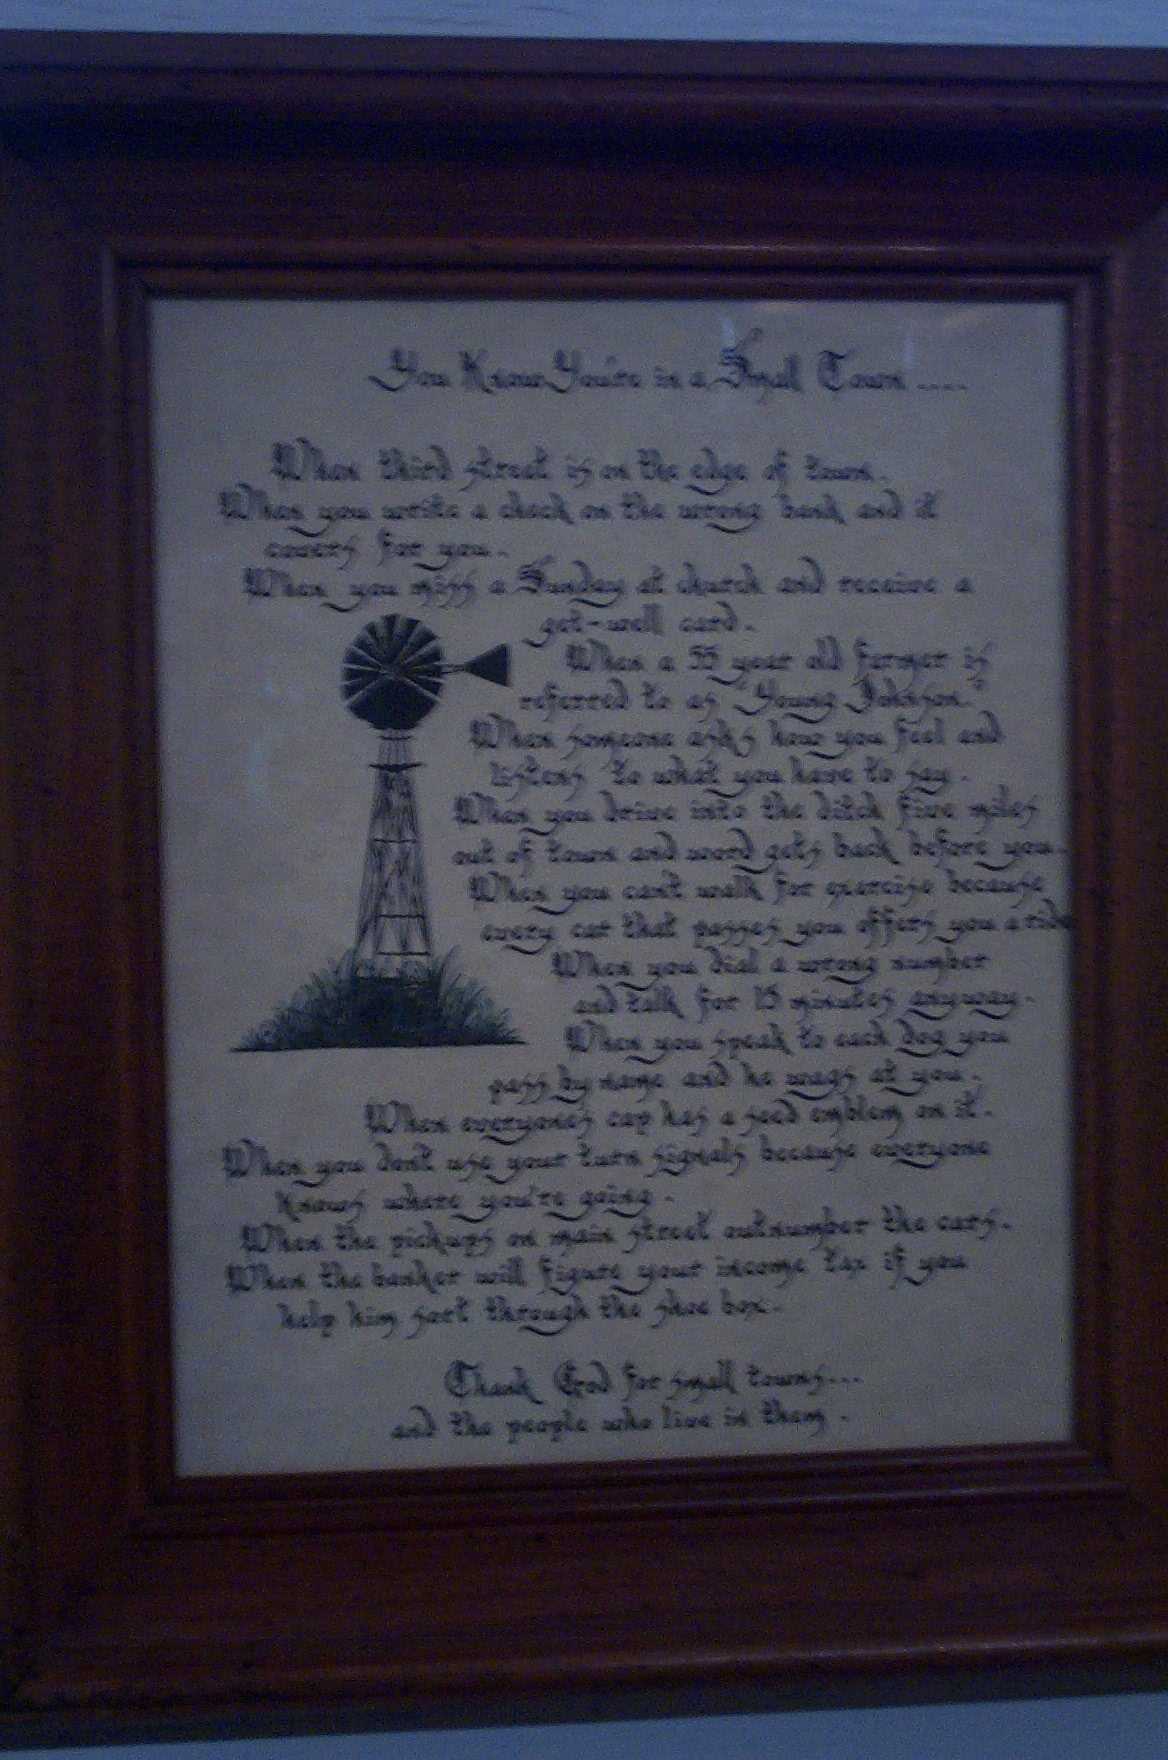 You Know You're in a Small Town ....
When third street is on the edge of town.
When you write a check on the wrong bank and it
covers for you.
When you miss a Sunday at church and receive a
get-well card.
When a 55 year old farmer is
referred to as "Young Johnson."
When someone asks how you feel and
listens to what you have to say.
When you drive into the ditch five miles
out of town and word gets back before you.
When you can't walk for exercise because
every car that passes you offers you a ride
When you dial a wrong number
and talk for 15 minutes anyway.
When you speak to each dog you
pass by name and he wags at you.
When everyones cap has a seed emblem on it.
When you don't use your turn signals because everyone
knows where you're going.
When the pickups on main street outnumber the cars.
When the banker will figure your income tax if you
help him sort through the shoe box.
Thank God for small towns...
and the people who live in them.